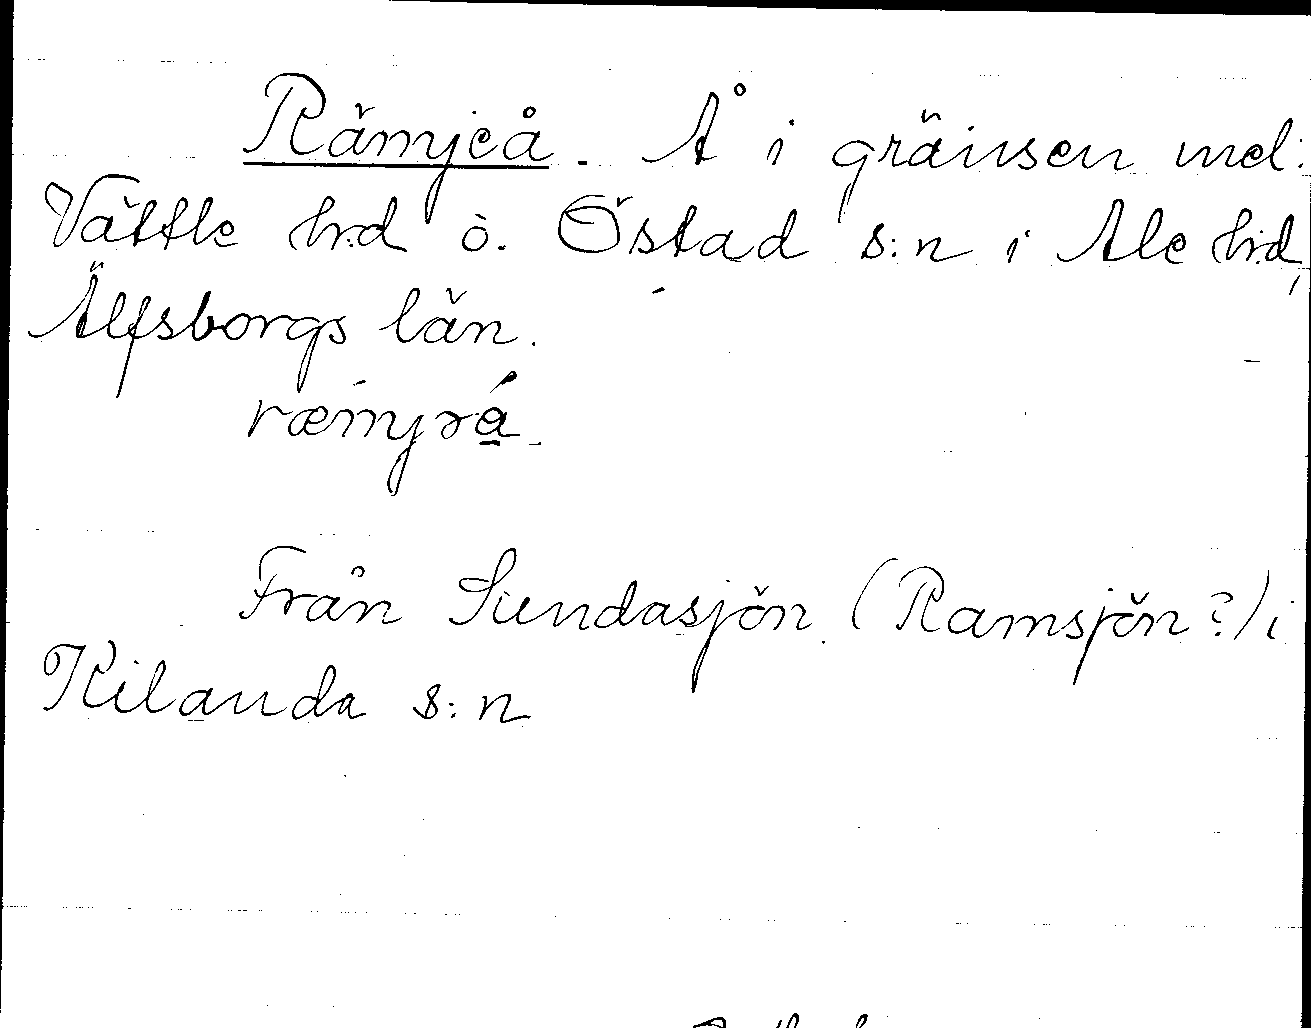 Rämjeå. Å i gränsen mel:
Vättle h:d o. Östad s:n i Ale h:d,
Älfsborgs län.
ræmjəá.
Från Sundasjön (Ramsjön?) i
Kilanda s:n